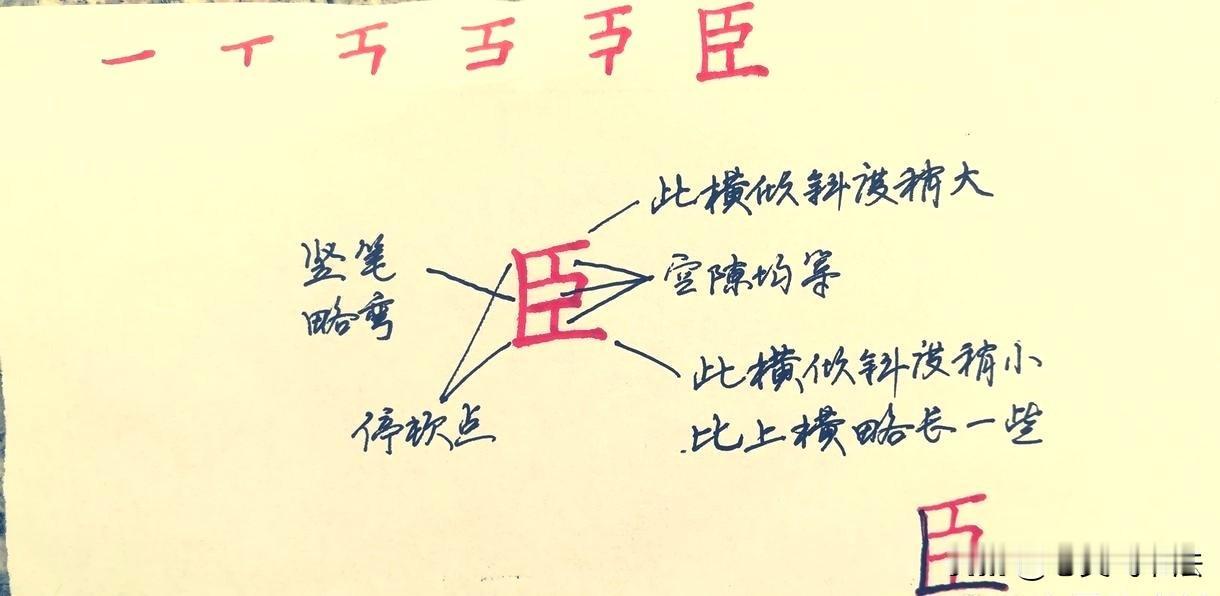 臣
此横倾斜度稍大
竖笔
略弯
臣
空隙均等
此横倾斜度稍小
比上横略长一些
停顿点
臣